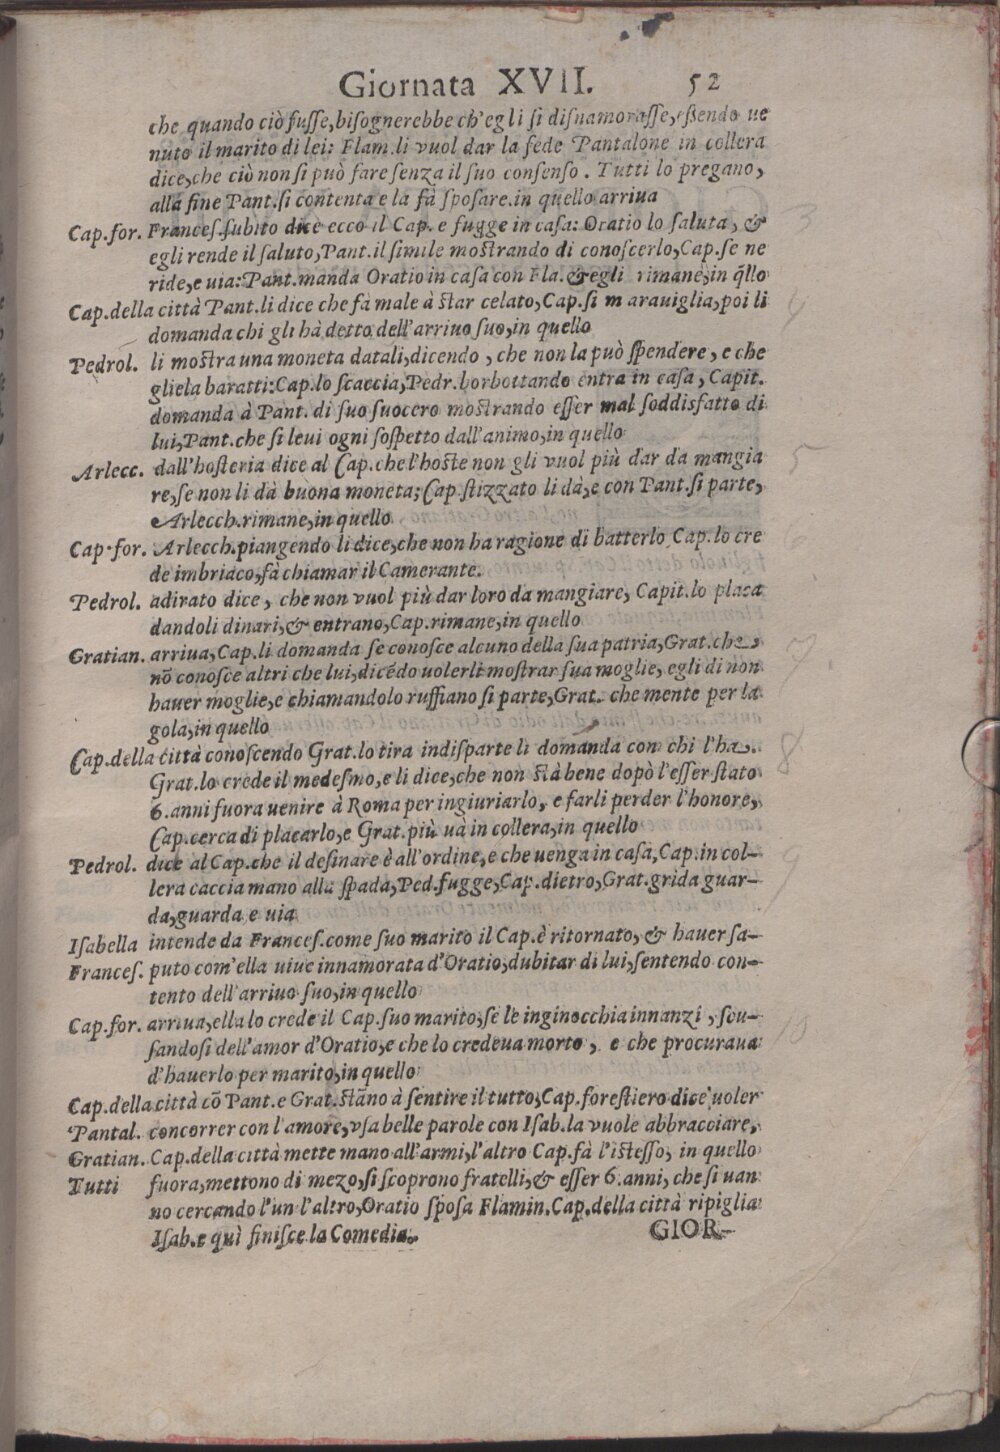 Giornata XVII. 52
che quando ciò fusse, bisognerebbe ch'egli si disnamorasse, essendo ue
nuto il marito di lei: Flam. li vuol dar la fede Pantalone in collera
dice, che ciò non si può fare senza il suo consenso. Tutti lo pregano,
alla fine Pant. si contenta e la fà sposare. in quello arriua
Cap. for. Frances. subito dice ecco il Cap. e fugge in casa: Oratio lo saluta, &
egli rende il saluto, Pant. il simile mostrando di conoscerlo, Cap. se ne
ride, e uia: Pant. manda Oratio in casa con Fla. & egli rimane, in q̃llo
Cap. della città Pant. li dice che fà male à star celato, Cap. si marauiglia, poi li
domanda chi gli hà detto dell'arriuo suo, in quello
Pedrol. li mostra una moneta datali, dicendo, che non la può spendere, e che
gliela baratti: Cap. lo scaccia, Pedr. borbottando entra in casa, Capit.
domanda à Pant. di suo suocero mostrando esser mal soddisfatto di
lui, Pant. che si leui ogni sospetto dall'animo, in quello
Arlecc. dall'hosteria dice al Cap. che l'hoste non gli vuol più dar da mangia
re, se non li dà buona moneta; Cap. stizzato li dà, e con Pant. si parte,
Arlecch. rimane, in quello
Cap. for. Arlecch. piangendo li dice, che non ha ragione di batterlo Cap. lo cre
de imbriaco, fà chiamar il Camerante.
Pedrol. adirato dice, che non vuol più dar loro da mangiare, Capit. lo placa
dandoli dinari, & entrano, Cap. rimane, in quello
Gratian. arriua, Cap. li domanda se conosce alcuno della sua patria, Grat. che
nõ conosce altri che lui, dicẽdo uolerli mostrar sua moglie, egli di non
hauer moglie, e chiamandolo ruffiano si parte, Grat. che mente per la
gola, in quello
Cap. della città conoscendo Grat. lo tira indisparte li domanda con chi l'ha.
Grat. lo crede il medesmo, e li dice, che non stà bene dopò l'esser stato
6. anni fuora uenire à Roma per ingiuriarlo, e farli perder l'honore,
Cap. cerca di placarlo, e Grat. più uà in collera, in quello
Pedrol. dice al Cap. che il desinare è all'ordine, e che uenga in casa, Cap. in col-
lera caccia mano alla spada, Ped. fugge, Cap. dietro, Grat. grida guar-
da, guarda e uia
Isabella intende da Frances. come suo marito il Cap. è ritornato, & hauer sa-
Frances. puto com'ella uiue innamorata d'Oratio, dubitar di lui, sentendo con-
tento dell'arriuo suo, in quello
Cap. for. arriua, ella lo crede il Cap. suo marito, se le inginocchia innanzi, scu-
sandosi dell'amor d'Oratio, e che lo credeua morto, e che procuraua
d'hauerlo per marito, in quello
Cap. della città cõ Pant. e Grat. stãno à sentire il tutto, Cap. forestiero dice uoler
Pantal. concorrer con l'amore, vsa belle parole con Isab. la vuole abbracciare,
Gratian. Cap. della città mette mano all'armi, l'altro Cap. fà l'istesso, in quello
Tutti fuora, mettono di mezo, si scoprono fratelli, & esser 6. anni, che si uan
no cercando l'un l'altro, Oratio sposa Flamin. Cap. della città ripiglia
Isab. e quì finisce la Comedia.
GIOR-
3
4
5
6
7.
8
9
10